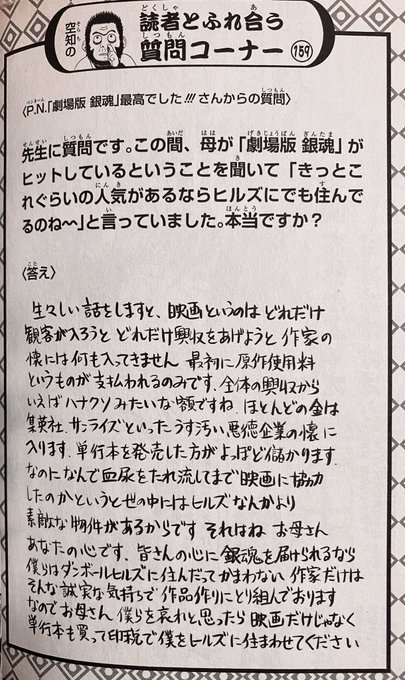 空知の
読者とふれ合う
質問コーナー 159
〈P.N.「劇場版 銀魂」最高でした!!! さんからの質問〉
先生に質問です。この間、母が「劇場版 銀魂」が
ヒットしているということを聞いて「きっとこ
れぐらいの人気があるならヒルズにでも住んで
るのね〜」と言っていました。本当ですか？
〈答え〉
生々しい話をしますと、映画というのは どれだけ
観客が入ろうと どれだけ興収をあげようと 作家の
懐には何も入ってきません 最初に原作使用料
というものが支払われるのみです. 全体の興収から
いえばハナクソみたいな額ですね. ほとんどの金は
集英社. サンライズといったうす汚い悪徳企業の懐に
入ります. 単行本を発売した方がよっぽど儲かります.
なのになんで血尿をたれ流してまで映画に協力
したのかというと世の中にはヒルズなんかより
素敵な物件があるからです それはね お母さん
あなたの心です. 皆さんの心に 銀魂を届けられるなら
僕らはダンボールヒルズに住んだってかまわない 作家だけは
そんな誠実な気持ちで 作品作りにとり組んでおります
なのでお母さん 僕らを哀れと思ったら 映画だけじゃなく
単行本も買って印税で僕をヒルズに住まわせてください